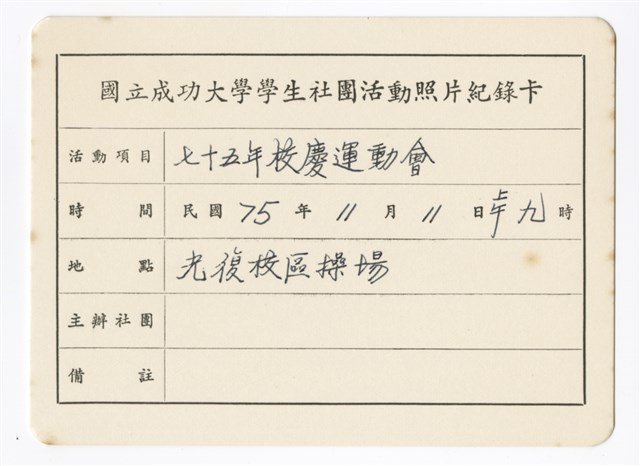 國立成功大學學生社團活動照片紀錄卡
活動項目 七十五年校慶運動會
時間 民國75年11月11日上午九時
地點 光復校區操場
主辦社團
備註